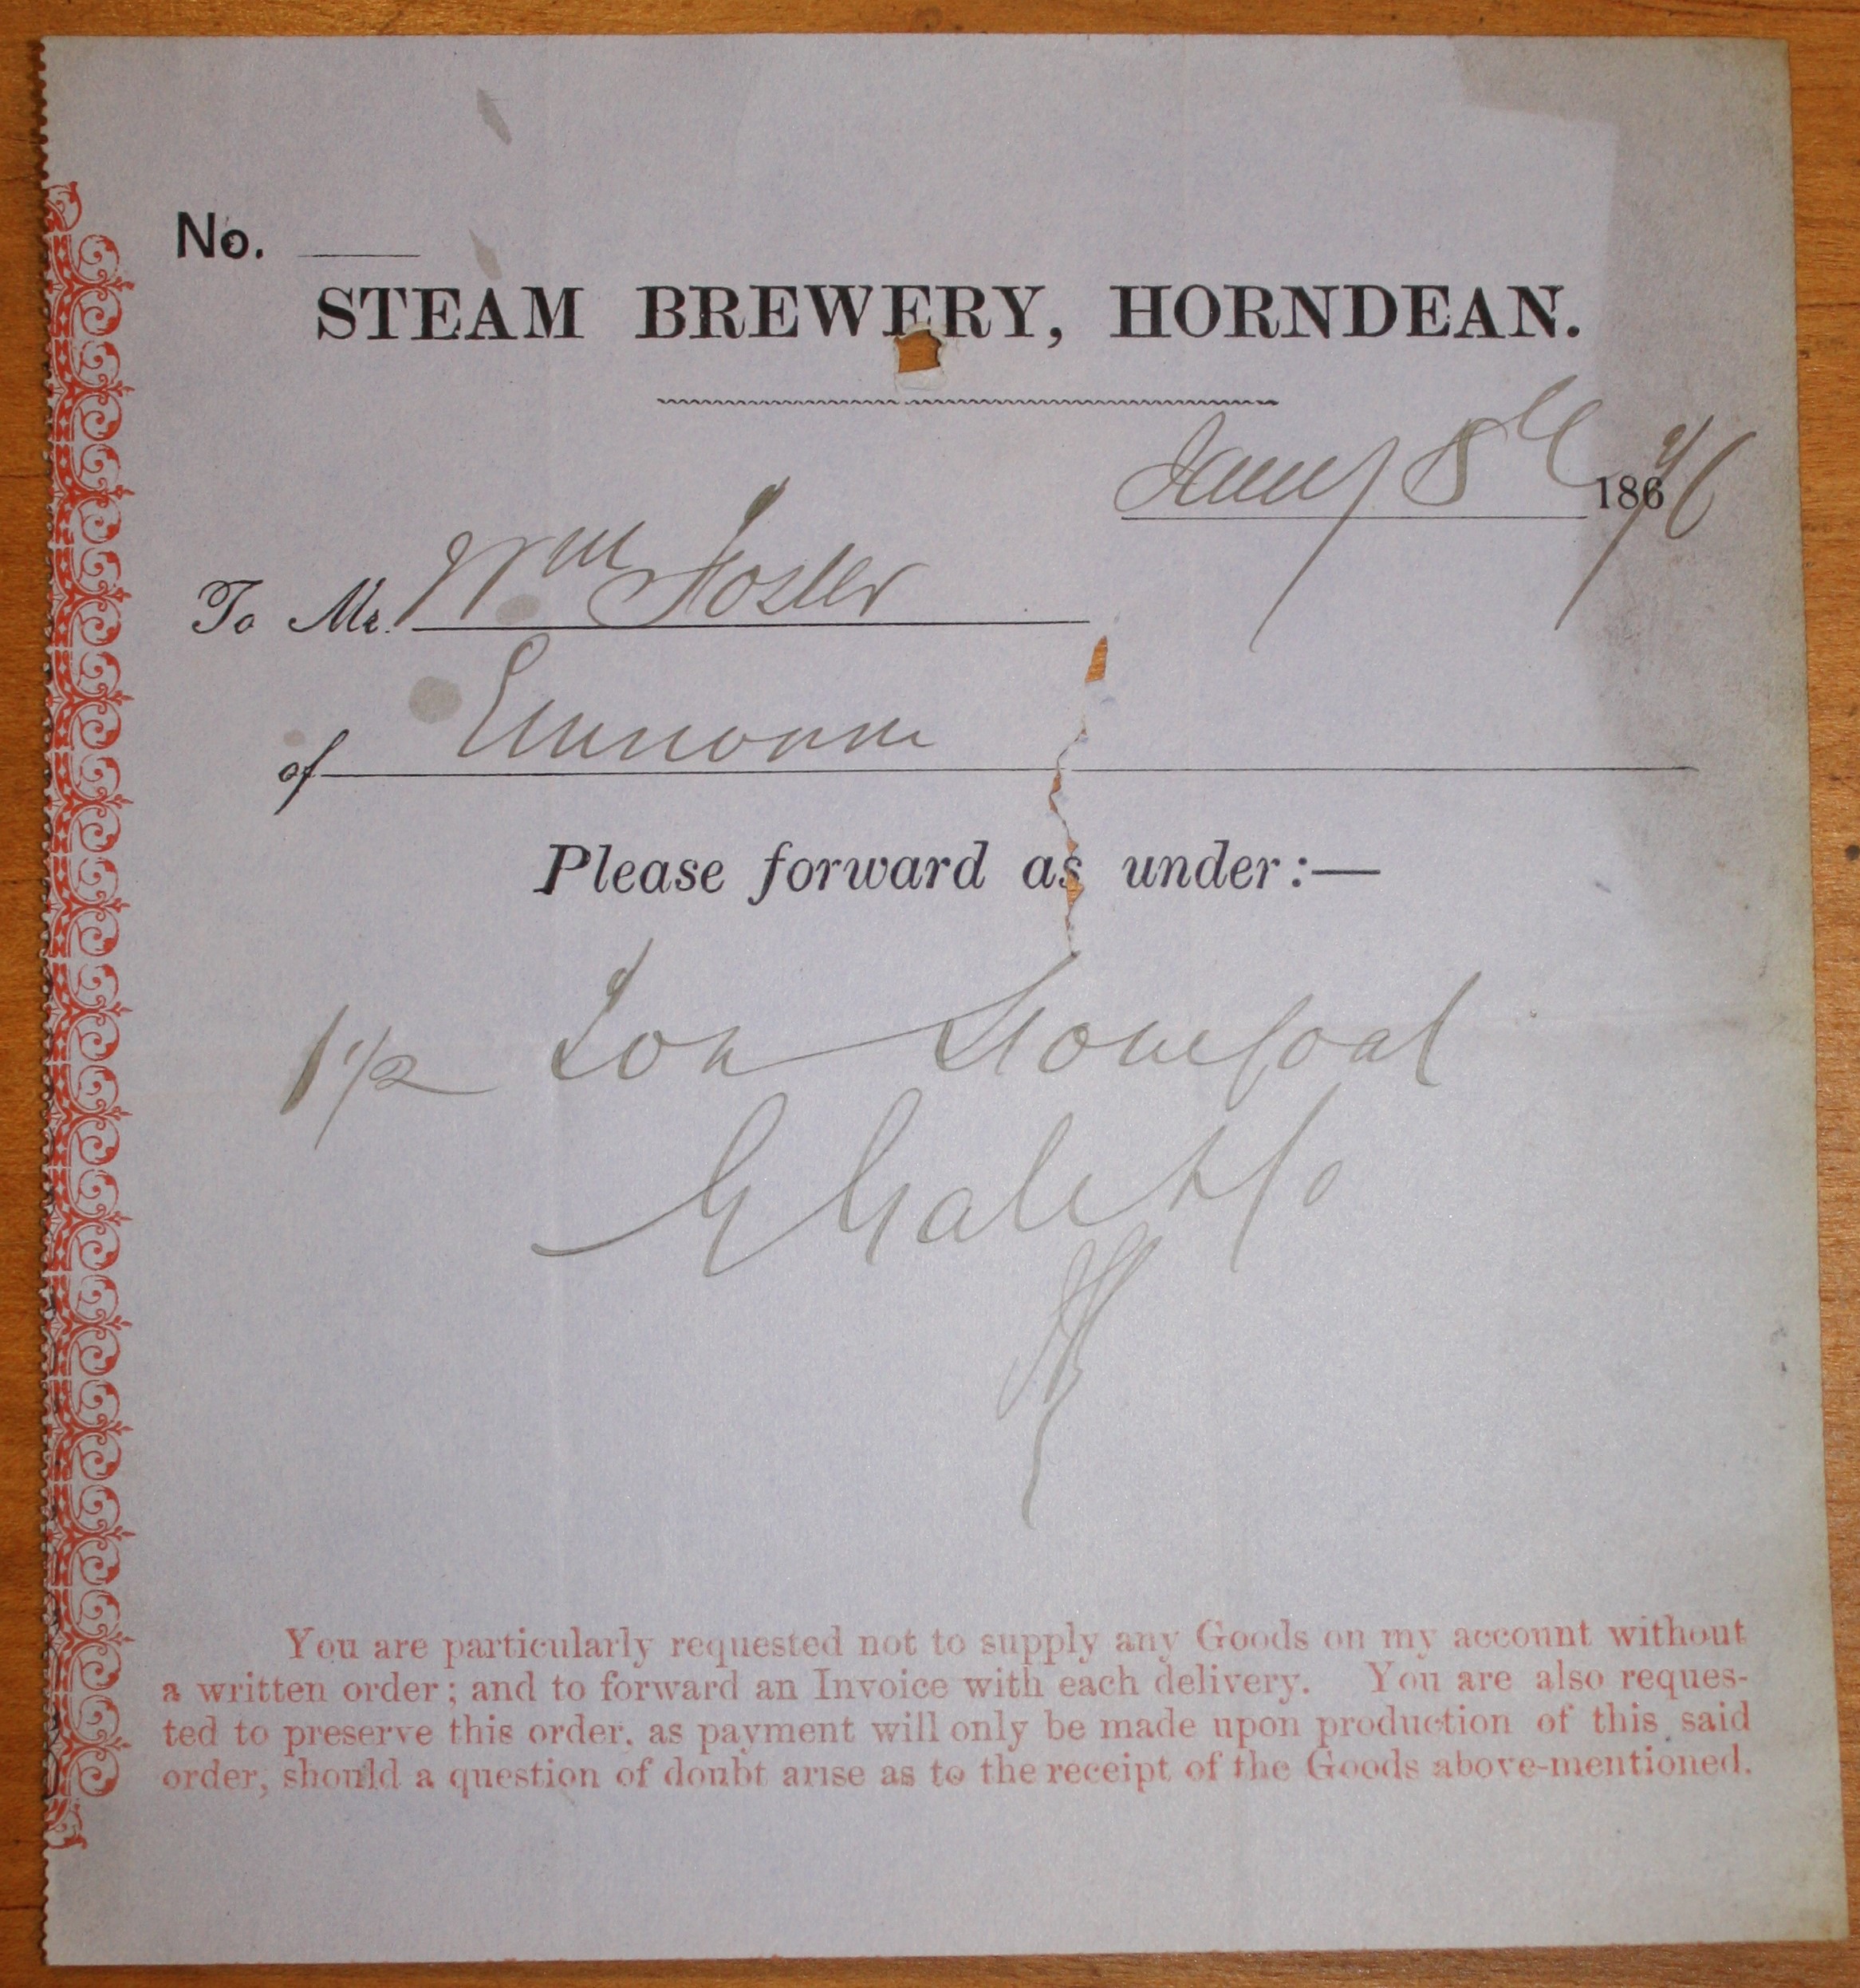 No.
STEAM BREWERY, HORNDEAN.
Jany 8th 1876
To Mr. Wm Foster
of Emsworth
Please forward as under:—
1 1/2 Ton Steam Coal
G Gale & Co
You are particularly requested not to supply any Goods on my account without
a written order; and to forward an Invoice with each delivery. You are also reques-
ted to preserve this order, as payment will only be made upon production of this said
order, should a question of doubt arise as to the receipt of the Goods above-mentioned.